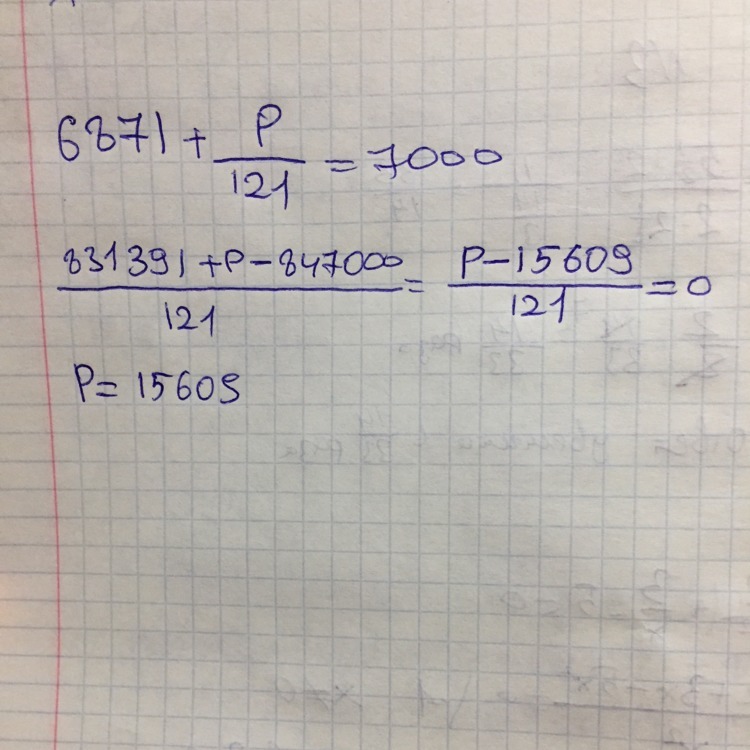 6871 + P/121 = 7000
(831391 + P - 847000)/121 = (P - 15609)/121 = 0
P = 15609